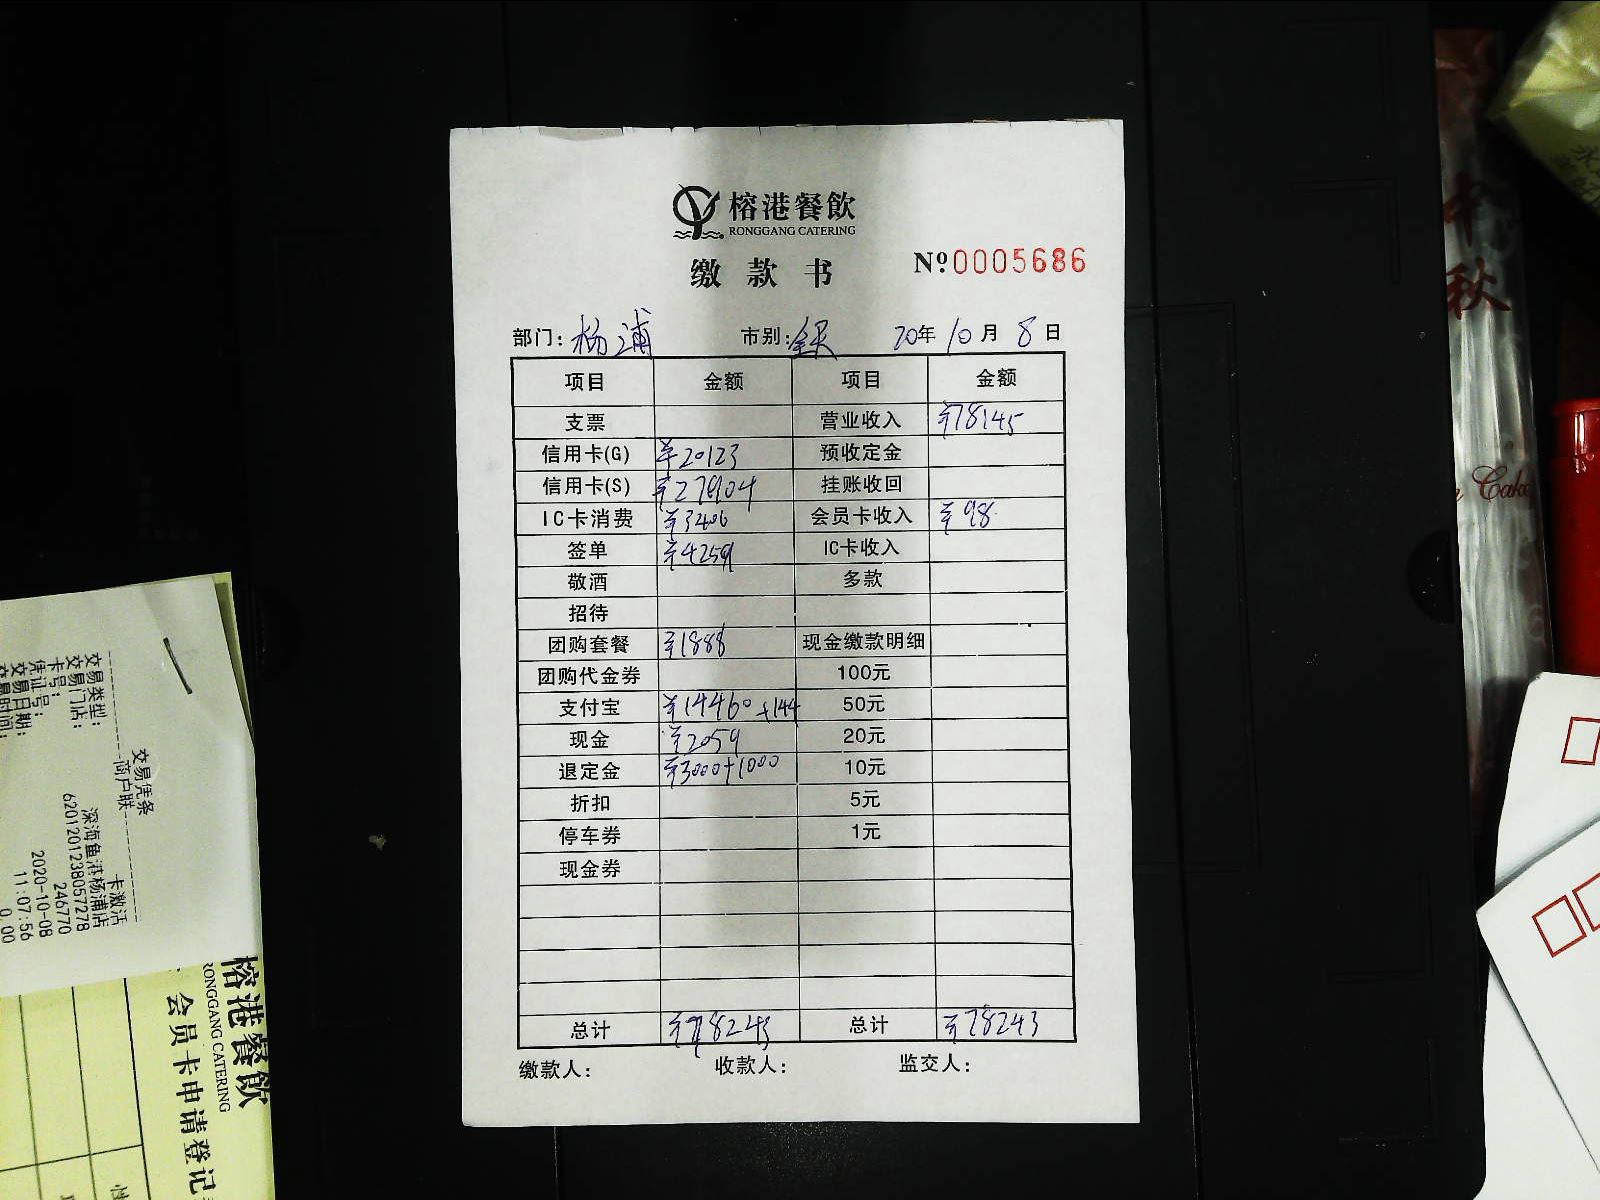 榕港餐飲
RONGGANG CATERING
缴款书
№0005686
部门:杨浦 市别:全 20年10月8日
项目 金额 项目 金额
支票 营业收入 ¥78145
信用卡(G) ¥20123 预收定金
信用卡(S) ¥27904 挂账收回
IC卡消费 ¥3406 会员卡收入 ¥98
签单 ¥4259 IC卡收入
敬酒 多款
招待
团购套餐 ¥1888 现金缴款明细
团购代金券 100元
支付宝 ¥14460+144 50元
现金 ¥2059 20元
退定金 ¥3000+1000 10元
折扣 5元
停车券 1元
现金券
总计 ¥78243 总计 ¥78243
缴款人: 收款人: 监交人:
交易凭条
商户联
交易类型: 卡激活
交易门店: 深海鱼港杨浦店
卡号: 6201201238057278
凭证号: 246770
交易日期: 2020-10-08
交易时间: 11:07:56
0.00
榕港餐飲
RONGGANG CATERING
会员卡申请登记
性
中
秋
Cake